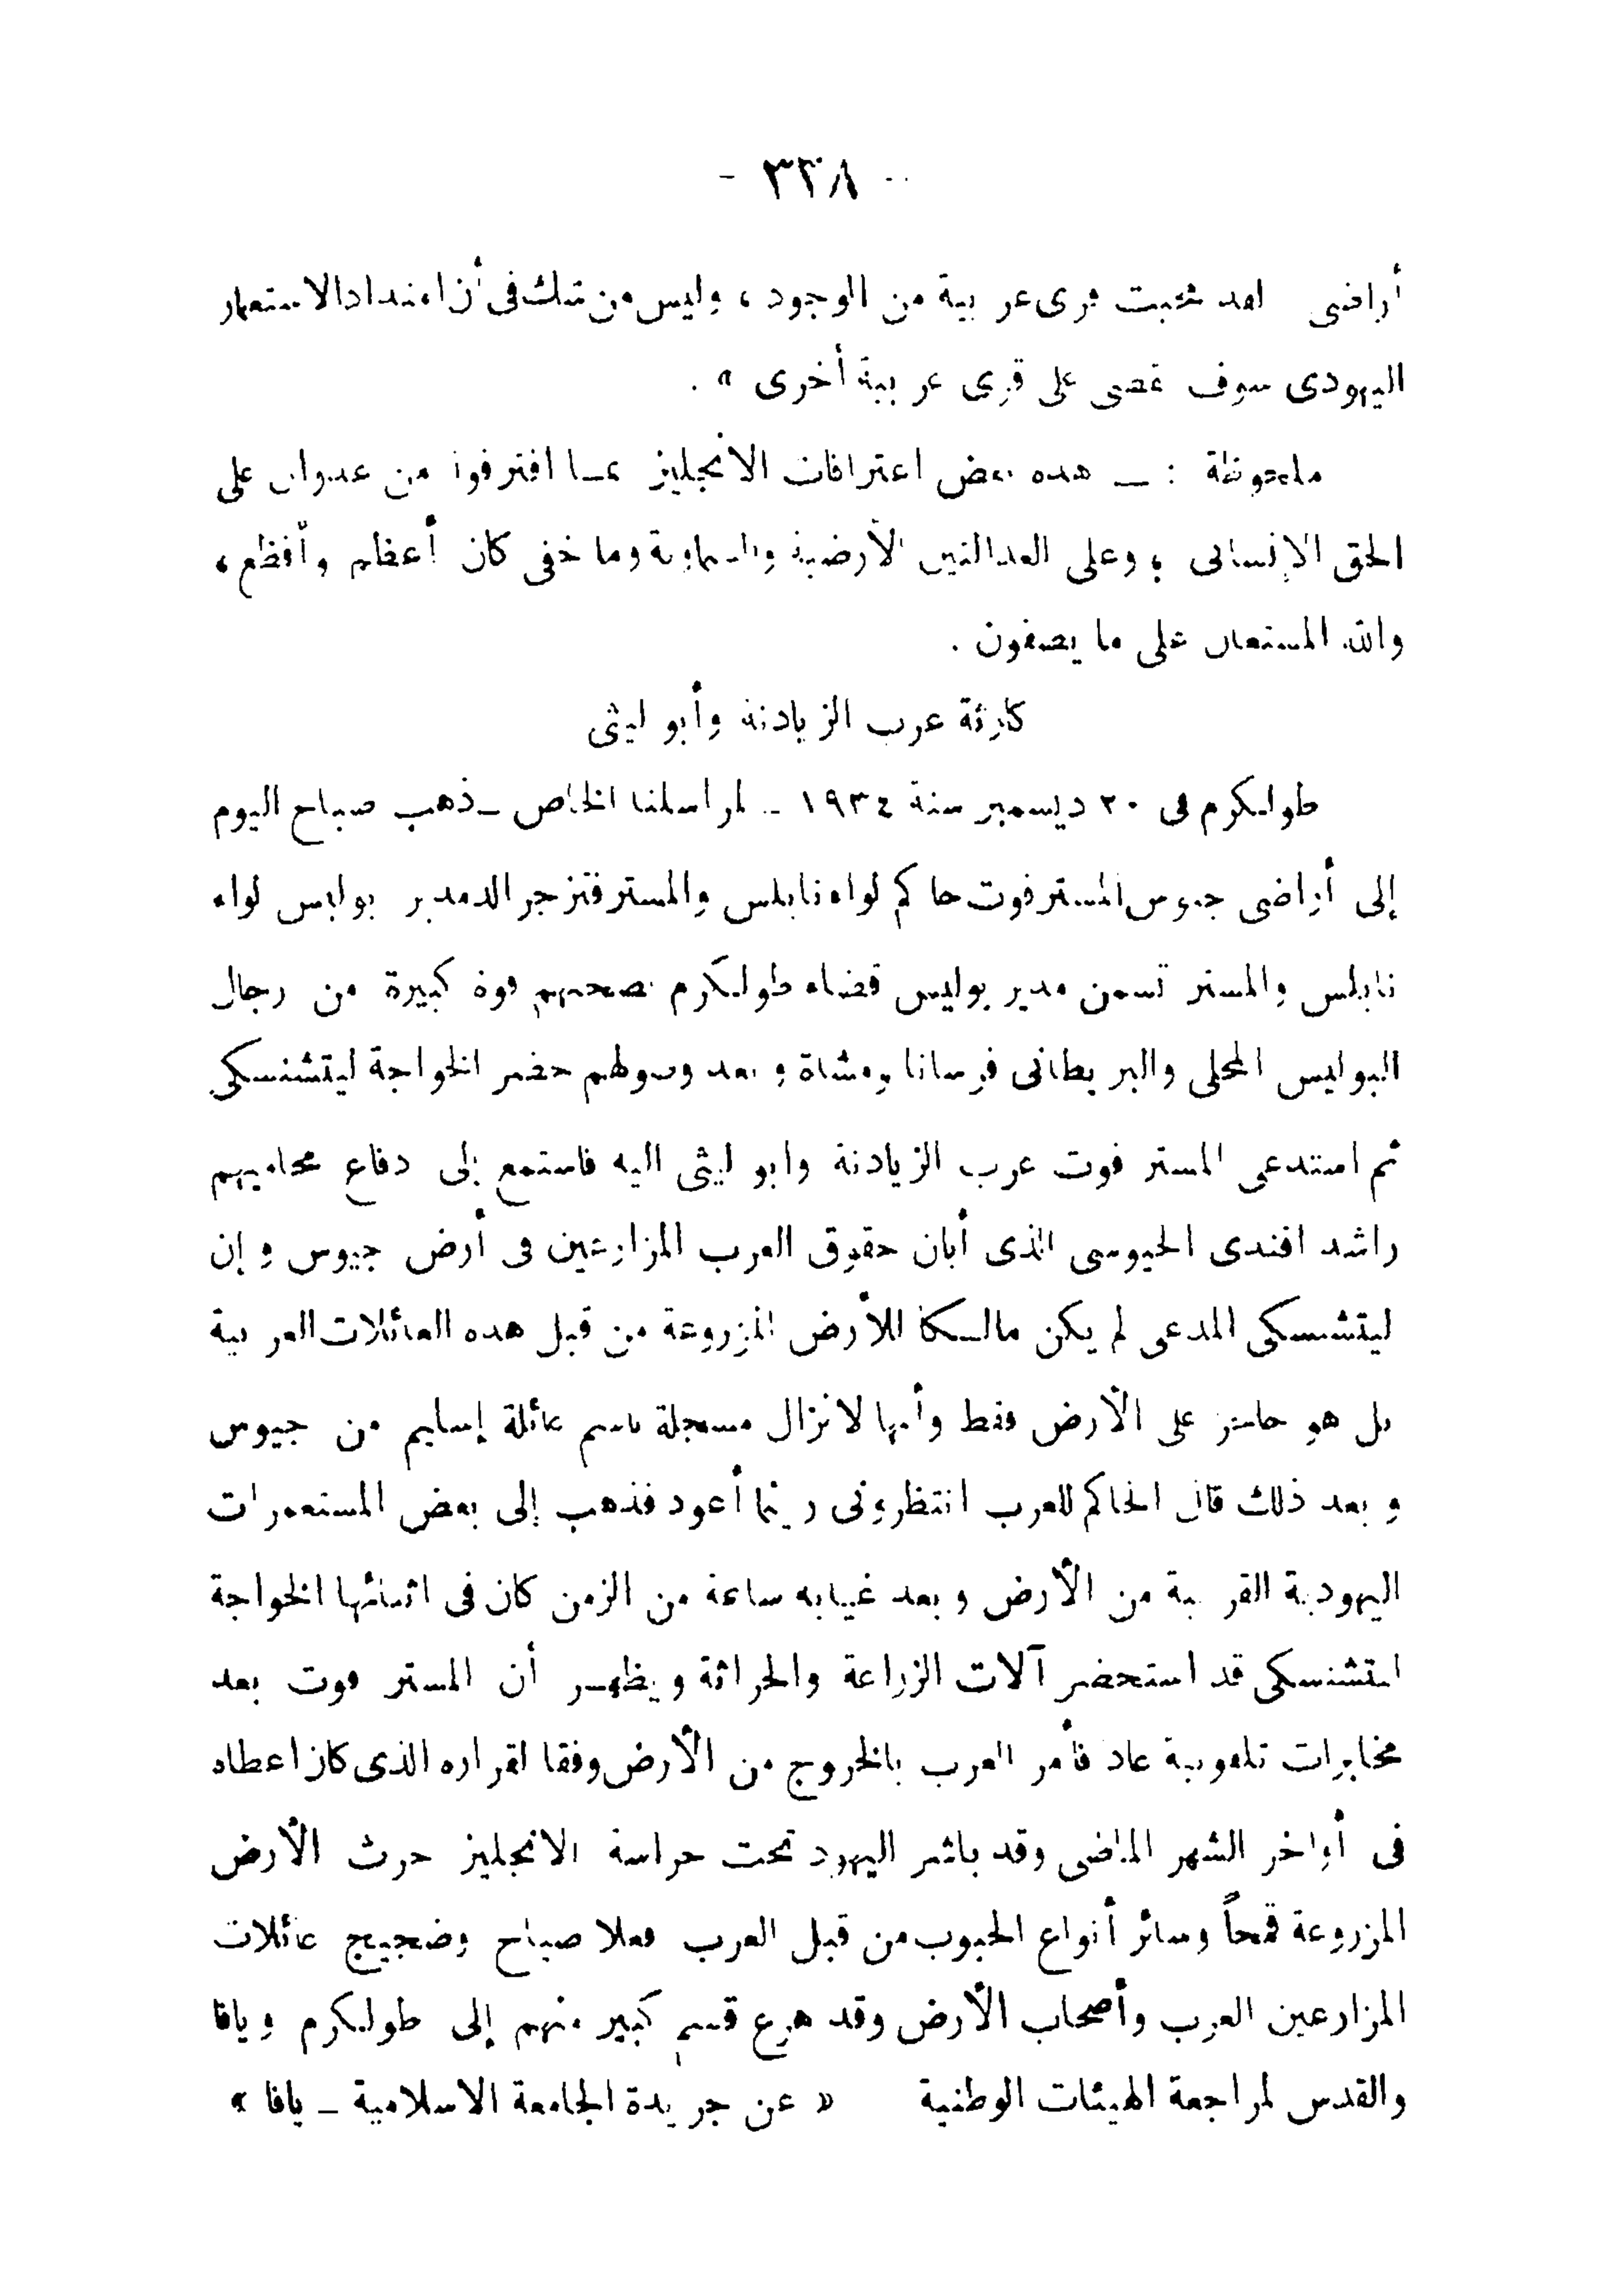 - ٣٢٨ -
أراضى لقد محيت قرى عربية من الوجود ، وليس من شك فى أن امتداد الاستعمار
اليهودى سوف يقضى على قرى عربية أخرى » .
ملحوظة : ــ هذه بعض اعترافات الانجليز بما اقترفوا من عدوان على
الحق الإنسانى ، وعلى العدالتين الأرضية والسماوية وما خفى كان أعظم وأفظع ،
والله المستعان على ما يصفون .
كارثة عرب الزيادنة وأبو ليثى
طولكرم فى ٢٠ ديسمبر سنة ١٩٣٤ ــ لمراسلنا الخاص ــ ذهب صباح اليوم
إلى أراضى جيوس المستر فوت حاكم لواء نابلس والمستر فتزجرالد مدير بوليس لواء
نابلس والمستر تسمن مدير بوليس قضاء طولكرم تصحبهم قوة كبيرة من رجال
البوليس المحلى والبريطانى فرسانا ومشاة وبعد وصولهم حضر الخواجة ليتشنسكى
ثم استدعى المستر فوت عرب الزيادنة وابو ليثى اليه فاستمع إلى دفاع محاميهم
راشد افندى الجيوسى الذى أبان حقوق العرب المزارعين فى أرض جيوس وإن
ليتشنسكى المدعى لم يكن مالكا للأرض المزروعة من قبل هذه العائلات العربية
بل هو حاجز على الأرض فقط وأنها لا تزال مسجلة باسم عائلة إسليم من جيوس
وبعد ذلك قال الحاكم للعرب انتظرونى ريثما أعود فذهب إلى بعض المستعمرات
اليهودية القريبة من الأرض وبعد غيابه ساعة من الزمن كان فى اثنائها الخواجة
لتشنسكى قد استحضر آلات الزراعة والحراثة ويظهر أن المستر فوت بعد
مخابرات تلفونية عاد فأمر العرب بالخروج من الأرض وفقا لقراره الذى كان اعطاه
فى أواخر الشهر الماضى وقد باشر اليهود تحت حراسة الانجليز حرث الأرض
المزروعة قمحاً وسائر أنواع الحبوب من قبل العرب فعلا صياح وضجيج عائلات
المزارعين العرب وأصحاب الأرض وقد هرع قسم كبير منهم إلى طولكرم ويافا
والقدس لمراجعة الهيئات الوطنية « عن جريدة الجامعة الاسلامية ــ يافا »